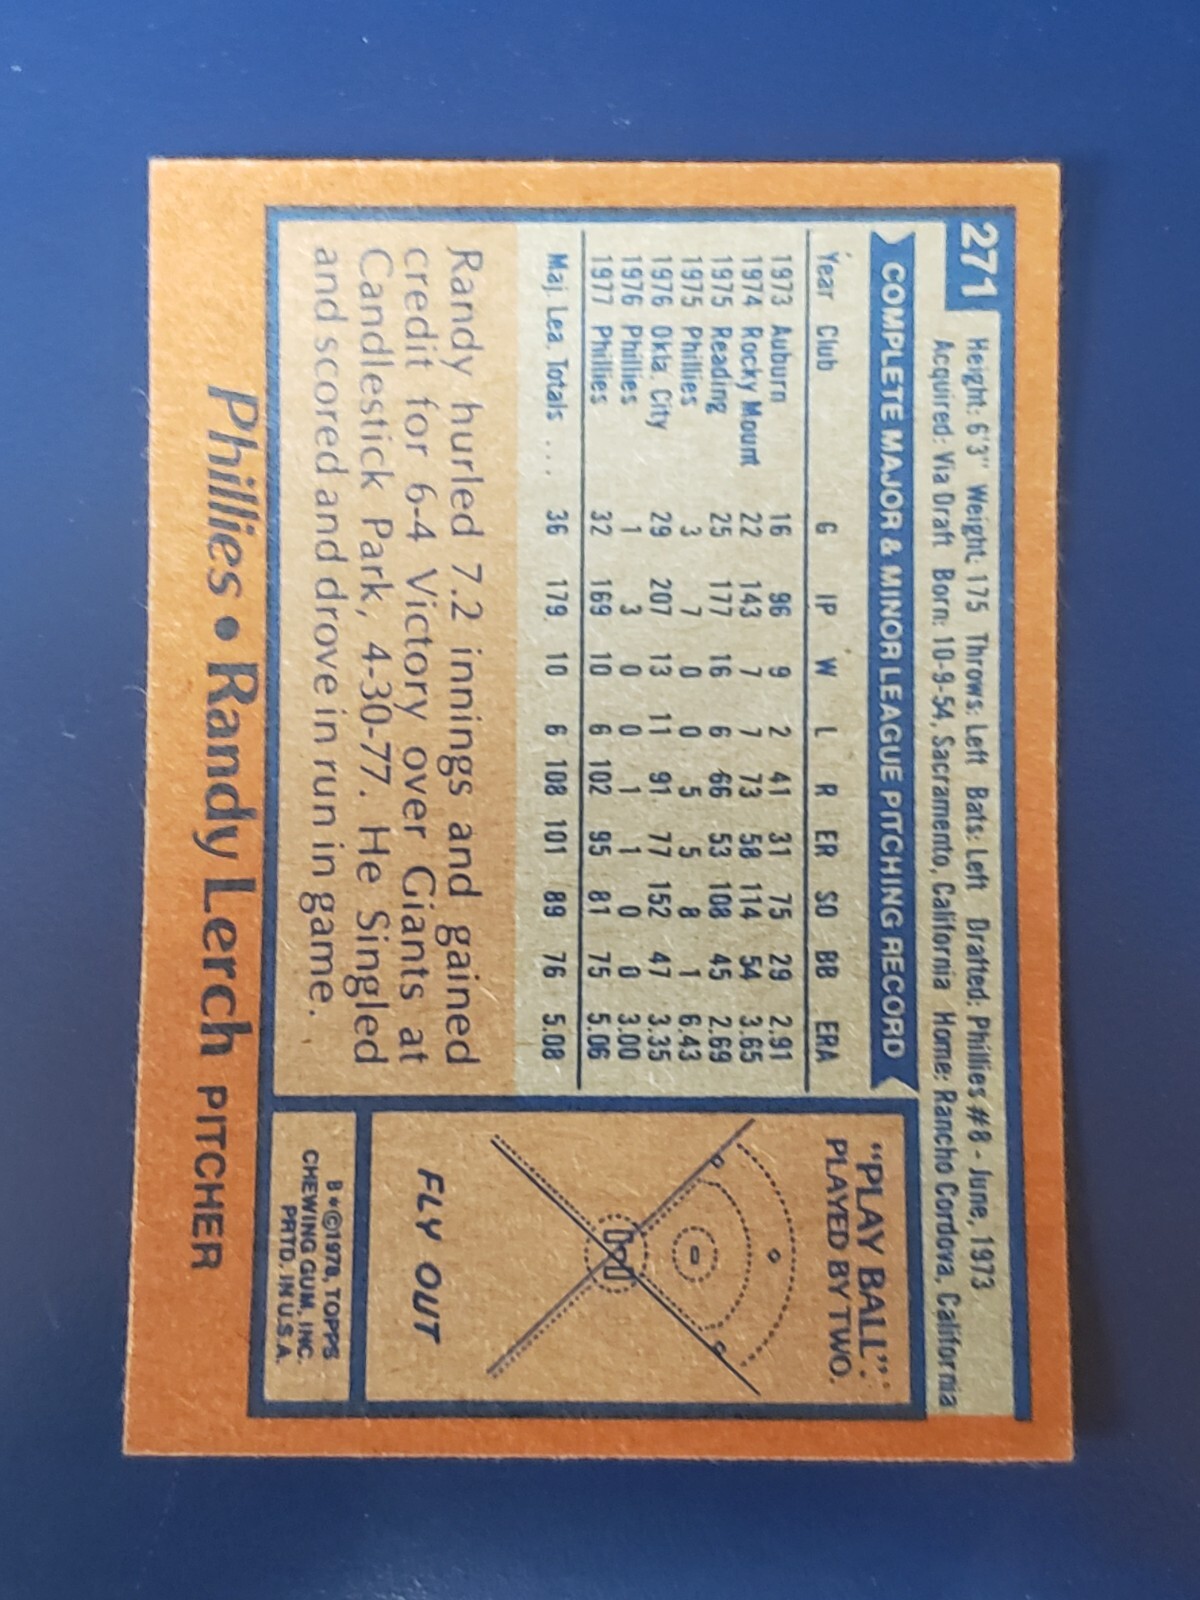 271
Height: 6'3" Weight: 175 Throws: Left Bats: Left Drafted: Phillies #8 - June, 1973
Acquired: Via Draft Born: 10-9-54, Sacramento, California Home: Rancho Cordova, California
COMPLETE MAJOR & MINOR LEAGUE PITCHING RECORD
Year Club G IP W L R ER SO BB ERA
1973 Auburn 16 96 9 2 41 31 75 29 2.91
1974 Rocky Mount 22 143 7 7 73 58 114 54 3.65
1975 Reading 25 177 16 6 66 53 108 45 2.69
1975 Phillies 3 7 0 0 5 5 8 1 6.43
1976 Okla. City 29 207 13 11 91 77 152 47 3.35
1976 Phillies 1 3 0 0 1 1 0 0 3.00
1977 Phillies 32 169 10 6 102 95 81 75 5.06
Maj. Lea. Totals ... 36 179 10 6 108 101 89 76 5.08
Randy hurled 7.2 innings and gained
credit for 6-4 Victory over Giants at
Candlestick Park, 4-30-77. He Singled
and scored and drove in run in game.
"PLAY BALL":
PLAYED BY TWO.
FLY OUT
B*©1978, TOPPS
CHEWING GUM, INC.
PRTD. IN U.S.A.
Phillies • Randy Lerch PITCHER